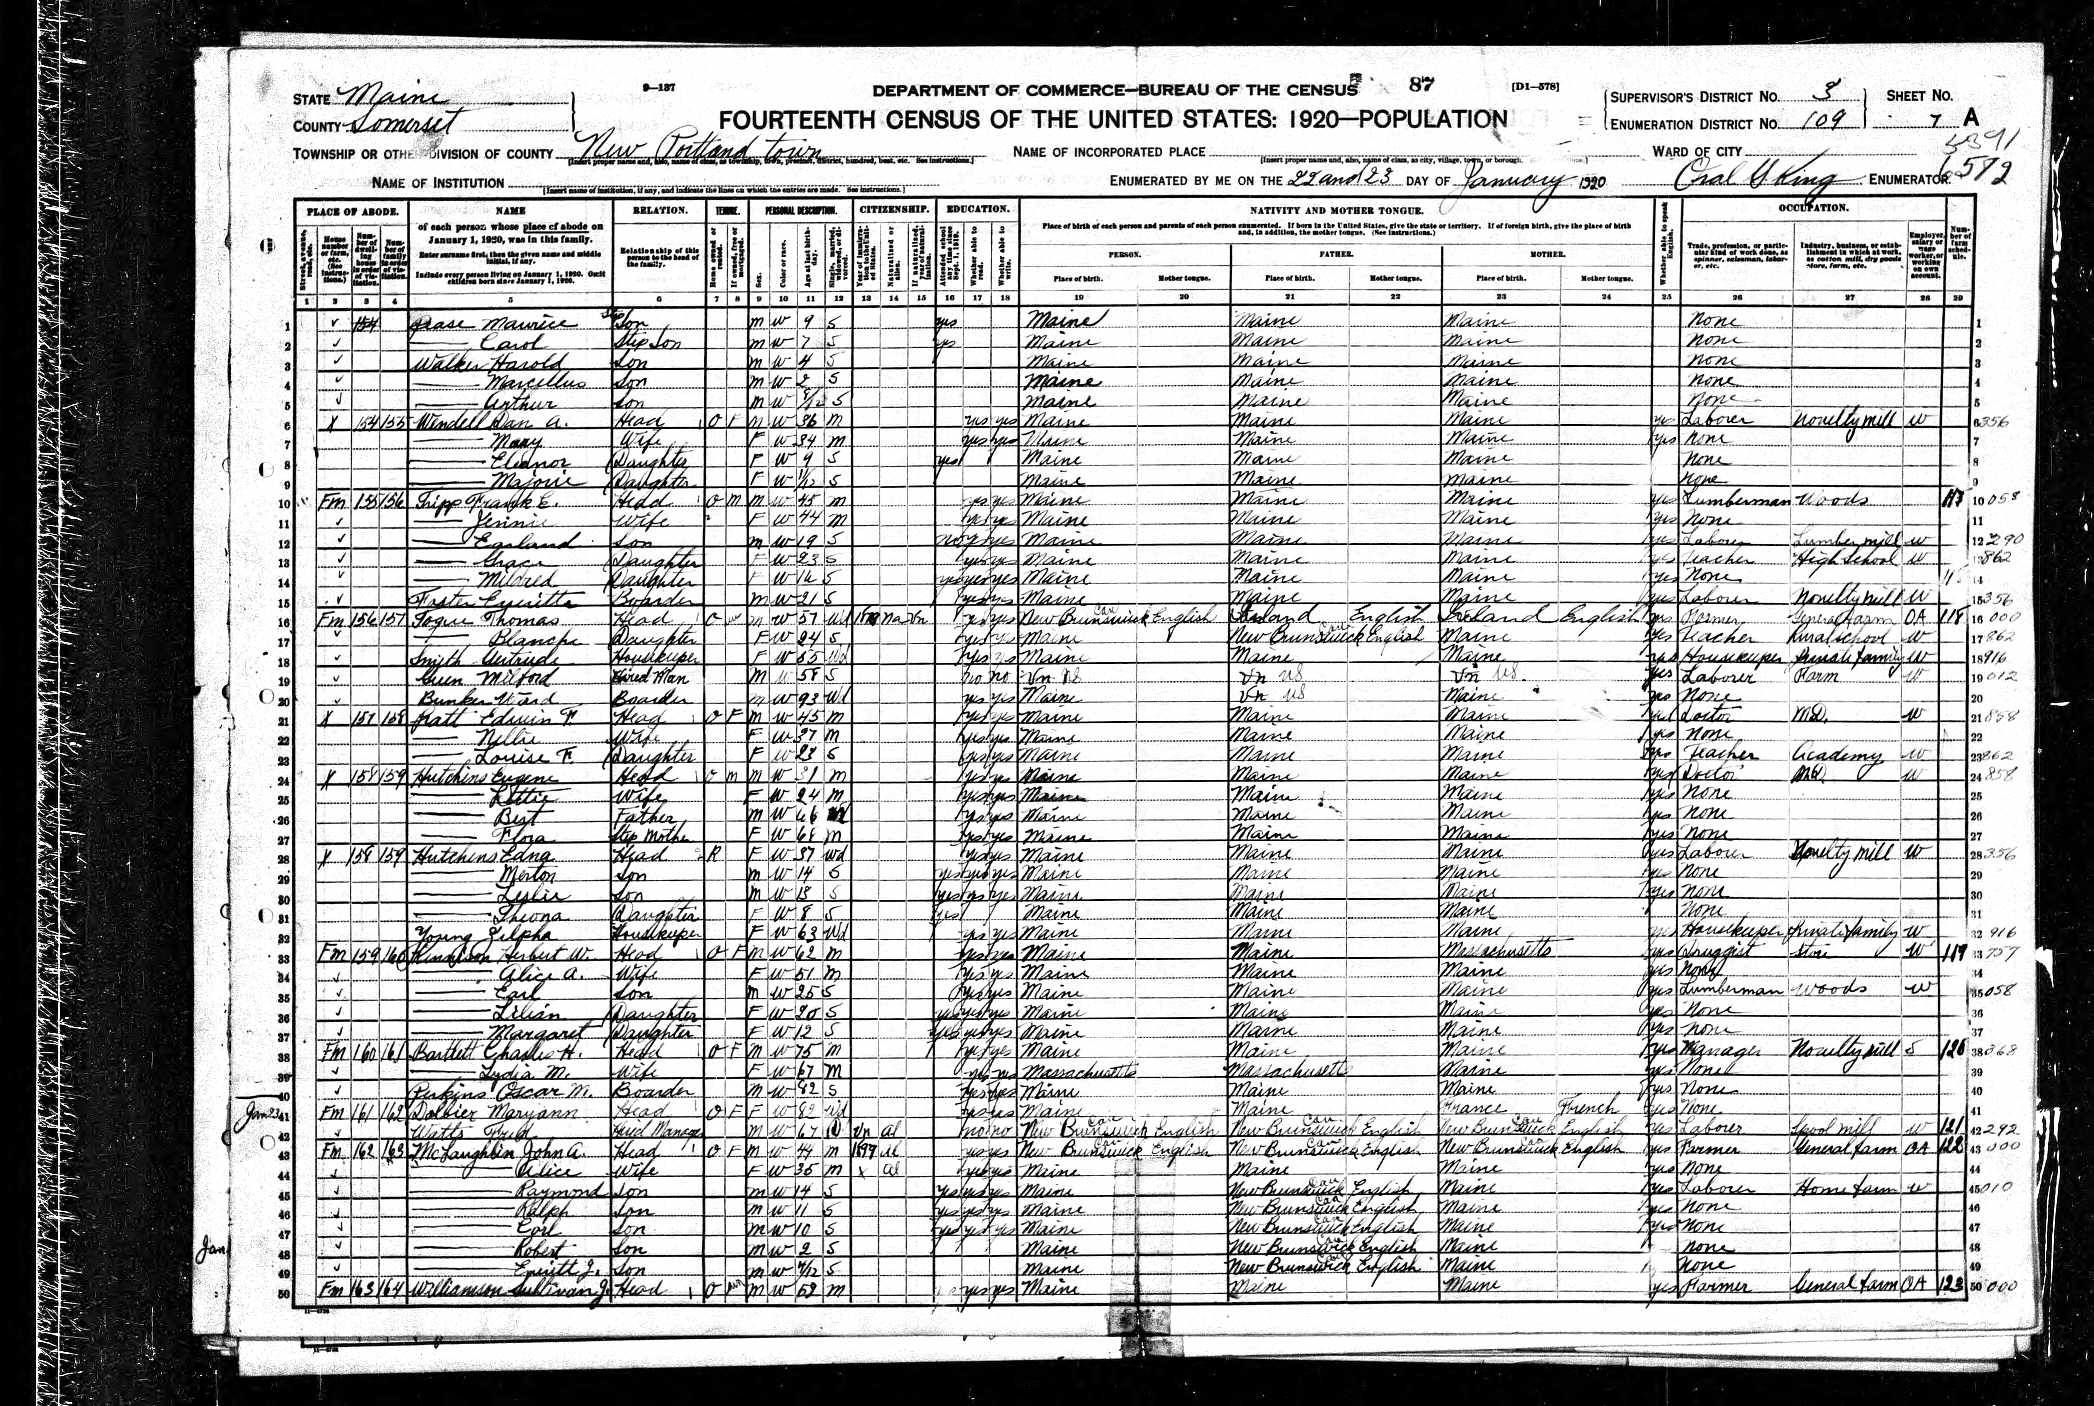 9—137
DEPARTMENT OF COMMERCE—BUREAU OF THE CENSUS
87
[D1—578]
STATE Maine
COUNTY Somerset
FOURTEENTH CENSUS OF THE UNITED STATES: 1920—POPULATION
SUPERVISOR'S DISTRICT NO. 3
ENUMERATION DISTRICT NO. 109
SHEET NO. 7 A
TOWNSHIP OR OTHER DIVISION OF COUNTY New Portland town
NAME OF INCORPORATED PLACE
WARD OF CITY
NAME OF INSTITUTION
[Insert name of institution, if any, and indicate the lines on which the entries are made. See instructions.]
ENUMERATED BY ME ON THE 22 and 23 DAY OF January 1920
ENUMERATOR.
PLACE OF ABODE. NAME RELATION. TENURE. PERSONAL DESCRIPTION. CITIZENSHIP. EDUCATION. NATIVITY AND MOTHER TONGUE. OCCUPATION.
of each person whose place of abode on January 1, 1920, was in this family.
Enter surname first, then the given name and middle initial, if any.
Include every person living on January 1, 1920. Omit children born since January 1, 1920.
Relationship of this person to the head of the family.
Place of birth of each person and parents of each person enumerated. If born in the United States, give the state or territory. If of foreign birth, give the place of birth and, in addition, the mother tongue. (See instructions.)
PERSON. FATHER. MOTHER.
Place of birth. Mother tongue. Place of birth. Mother tongue. Place of birth. Mother tongue.
1 2 3 4 5 6 7 8 9 10 11 12 13 14 15 16 17 18 19 20 21 22 23 24 25 26 27 28 29
1 Maurice Son m w 9 S yes Maine Maine Maine None
2 Carol Step Son m w 7 S yes Maine Maine Maine None
3 Walker Harold Son m w 4 S Maine Maine Maine None
4 Marcellus Son m w 2 S Maine Maine Maine None
5 Arthur Son m w S Maine Maine Maine None
6 X 154 155 Wendell Dan A. Head O F m w 36 m yes yes Maine Maine Maine yes Laborer Novelty mill w
7 Mary Wife F w 34 m yes yes Maine Maine Maine yes None
8 Eleanor Daughter F w 9 S yes Maine Maine Maine None
9 Majorie Daughter F w S Maine Maine Maine None
10 Fm 155 156 Tripp Frank E. Head O m m w 45 m yes yes Maine Maine Maine yes Lumberman Woods
11 Jennie Wife F w 44 m yes yes Maine Maine Maine yes None
12 Earland Son m w 19 S no yes yes Maine Maine Maine yes Laborer Lumber mill w
13 Grace Daughter F w 23 S yes yes Maine Maine Maine yes Teacher High School w
14 Mildred Daughter F w S yes yes yes Maine Maine Maine yes None
15 Boarder m w 21 S yes yes Maine Maine Maine yes Laborer Novelty mill w
16 Fm 156 157 Thomas Head O m w 57 wd Na Un yes yes New Brunswick Can English Ireland English Ireland English yes Farmer General farm OA 118
17 Blanche Daughter F w 24 S yes yes Maine New Brunswick Can English Maine yes Teacher Rural school w
18 Smith Gertrude Housekeeper F w 55 wd yes yes Maine Maine Maine yes Housekeeper Private family w
19 Milford Hired Man m w 58 S no no Un US Un US Un US yes Laborer Farm w
20 Bunker Ward Boarder m w 93 wd yes yes Maine Un US Maine yes None
21 X 157 158 Pratt Edwin F. Head O F m w 45 m yes yes Maine Maine Maine yes Doctor M.D. w
22 Nellie Wife F w 37 m yes yes Maine Maine Maine yes None
23 Louise F. Daughter F w 23 S yes yes Maine Maine Maine yes Teacher Academy w
24 X 158 159 Hutchins Eugene Head O m m w 31 m yes yes Maine Maine Maine yes Doctor MD w
25 Lettie Wife F w 24 m yes yes Maine Maine Maine yes None
26 Bert Father m w 66 yes yes Maine Maine Maine yes None
27 Flora Step Mother F w 68 m yes yes Maine Maine Maine yes None
28 X 158 159 Hutchins Edna Head R F w 37 wd yes yes Maine Maine Maine yes Laborer Novelty mill w
29 Merton Son m w 14 S yes yes yes Maine Maine Maine yes None
30 Leslie Son m w 13 S yes yes yes Maine Maine Maine yes None
31 Theona Daughter F w 8 S yes Maine Maine Maine None
32 Young Zilpha Housekeeper F w 63 wd yes yes Maine Maine Maine yes Housekeeper Private family w
33 Fm 159 160 Herbert W. Head O F m w 62 m yes yes Maine Maine Massachusetts yes Druggist Store w 119
34 Alice A. Wife F w 51 m yes yes Maine Maine Maine yes None
35 Earl Son m w 25 S yes yes Maine Maine Maine yes Lumberman Woods w
36 Lilian Daughter F w 20 S yes yes yes Maine Maine Maine yes None
37 Margaret Daughter F w 12 S yes yes yes Maine Maine Maine yes None
38 Fm 160 161 Bartlett Charles H. Head O F m w 75 m yes yes Maine Maine Maine yes Manager Novelty mill 120
39 Lydia M. Wife F w 67 m yes yes Massachusetts Massachusetts Maine yes None
40 Perkins Oscar M. Boarder m w 82 S yes yes Maine Maine Maine yes None
Jan 23 41 Fm 161 162 Dolbier Maryann Head O F F w 82 wd yes yes Maine Maine France French yes None
42 Watts Fred m w 67 Un Al no no New Brunswick Can English New Brunswick Can English New Brunswick Can English yes Laborer Spool mill w 121
43 Fm 162 163 McLaughlin John A. Head O F m w 44 m 1897 Al yes yes New Brunswick Can English New Brunswick Can English New Brunswick Can English yes Farmer General farm OA 122
44 Alice Wife F w 35 m x Al yes yes Maine Maine Maine yes None
45 Raymond Son m w 14 S yes yes yes Maine New Brunswick Can English Maine yes Laborer Home farm w
46 Ralph Son m w 11 S yes yes yes Maine New Brunswick Can English Maine yes None
47 Son m w 10 S yes yes yes Maine New Brunswick Can English Maine yes None
48 Robert Son m w 2 S Maine New Brunswick Can English Maine None
49 Son m w S Maine New Brunswick Can English Maine None
50 Fm 163 164 Williamson Sullivan J. Head O m w 62 m yes yes Maine Maine Maine yes Farmer General farm OA 123